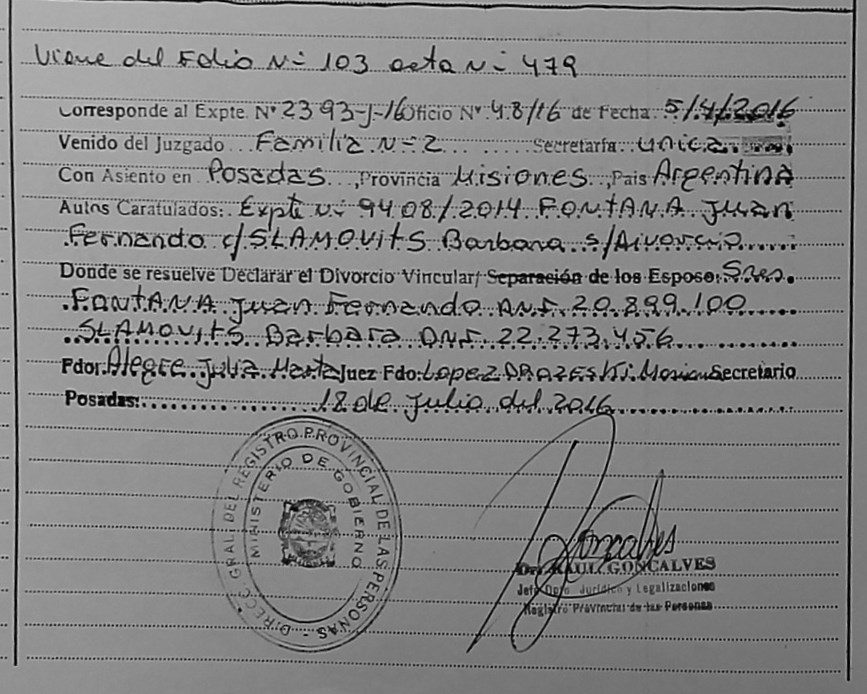 Viene del Folio Nº 103 acta Nº 479
Corresponde al Expte. Nº 2393-J-16 Oficio Nº 48/16 de Fecha 5/4/2016
Venido del Juzgado Familia Nº 2 Secretaría: Unica
Con Asiento en Posadas, Provincia Misiones, Pais Argentina
Autos Caratulados: Expte Nº 9408/2014 FONTANA Juan
Fernando c/SLAMOVITS Barbara s/Divorcio
Donde se resuelve Declarar el Divorcio Vincular/ Separación de los Esposo: Sres.
FONTANA Juan Fernando DNI. 20.899.100
SLAMOVITS Barbara DNI. 22.273.456
Fdor. Alegre Julia Marta Juez Fdo: Lopez Secretario
Posadas: 18 de Julio del 2016
DIRECC. GRAL. DEL REGISTRO PROVINCIAL DE LAS PERSONAS
MINISTERIO DE GOBIERNO
Goncalves
Dr. RAUL GONCALVES
Jefe Dpto. Jurídico y Legalizaciones
Registro Provincial de las Personas